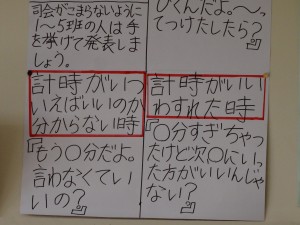 司会がこまらないように
1~5班の人は手
を挙げて発表しま
しょう。
びくんだよ。〜っ
てつけたしたら?』
計時がいつ
いえばいいのか
分からない時
『もう〇分だよ。
言わなくてい
いの?』
計時がいい
わすれた時
『〇分すぎちゃっ
たけど次〇にいっ
た方がいいんじゃ
ない?』